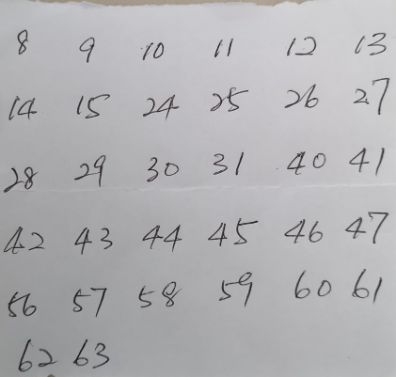 8 9 10 11 12 13
14 15 24 25 26 27
28 29 30 31 40 41
42 43 44 45 46 47
56 57 58 59 60 61
62 63